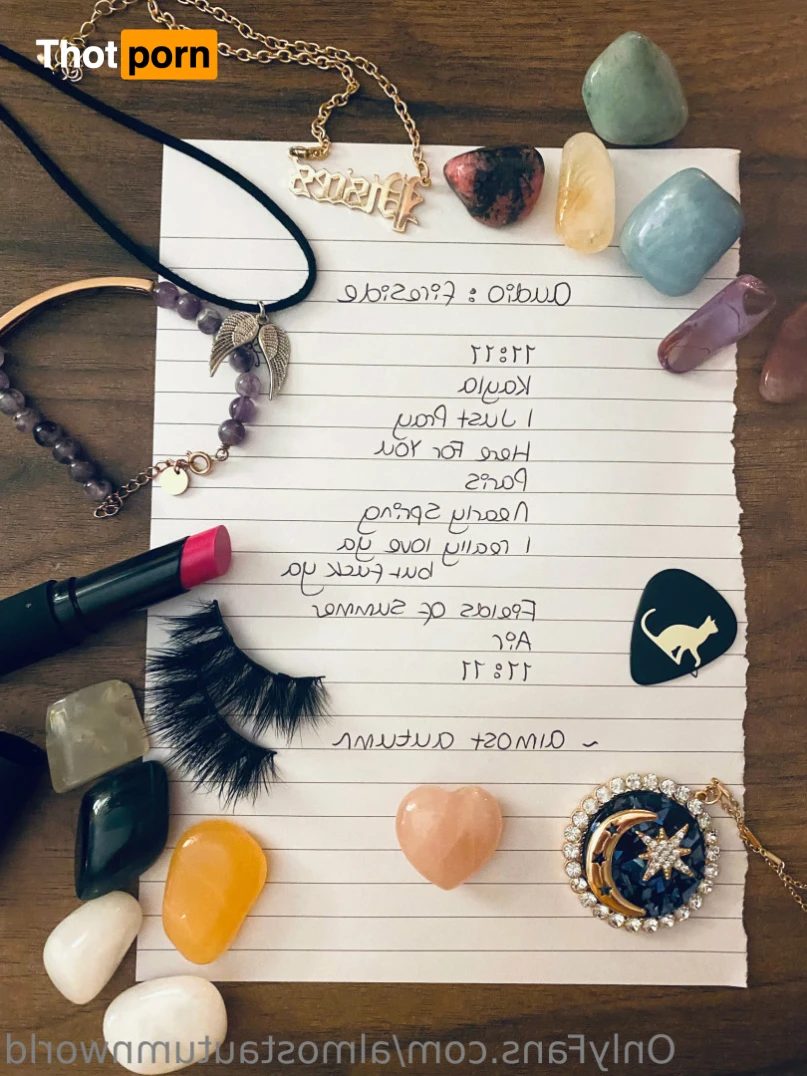 Thot porn
Pisces
Audio: Fireside
11:11
Kayla
I Just Pray
Here For You
Paris
Nearly Spring
I really love ya
but fuck ya
Fields Of Summer
Air
11:11
~ almost autumn
OnlyFans.com/almostautumnworld